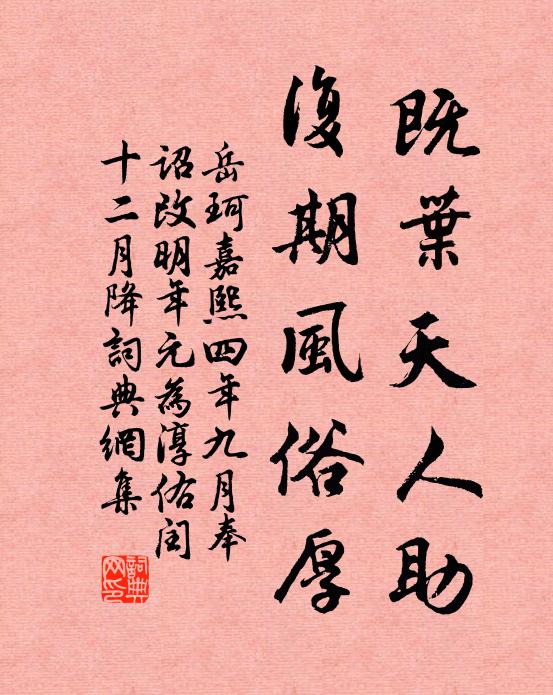 既葉天人助
復期風俗厚
岳珂嘉熙四年九月奉
詔改明年元為淳佑閏
十二月降詞典網集
詞典網印